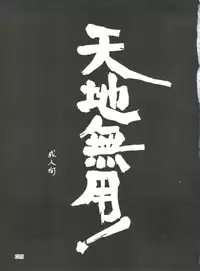 天地無用!
成人向